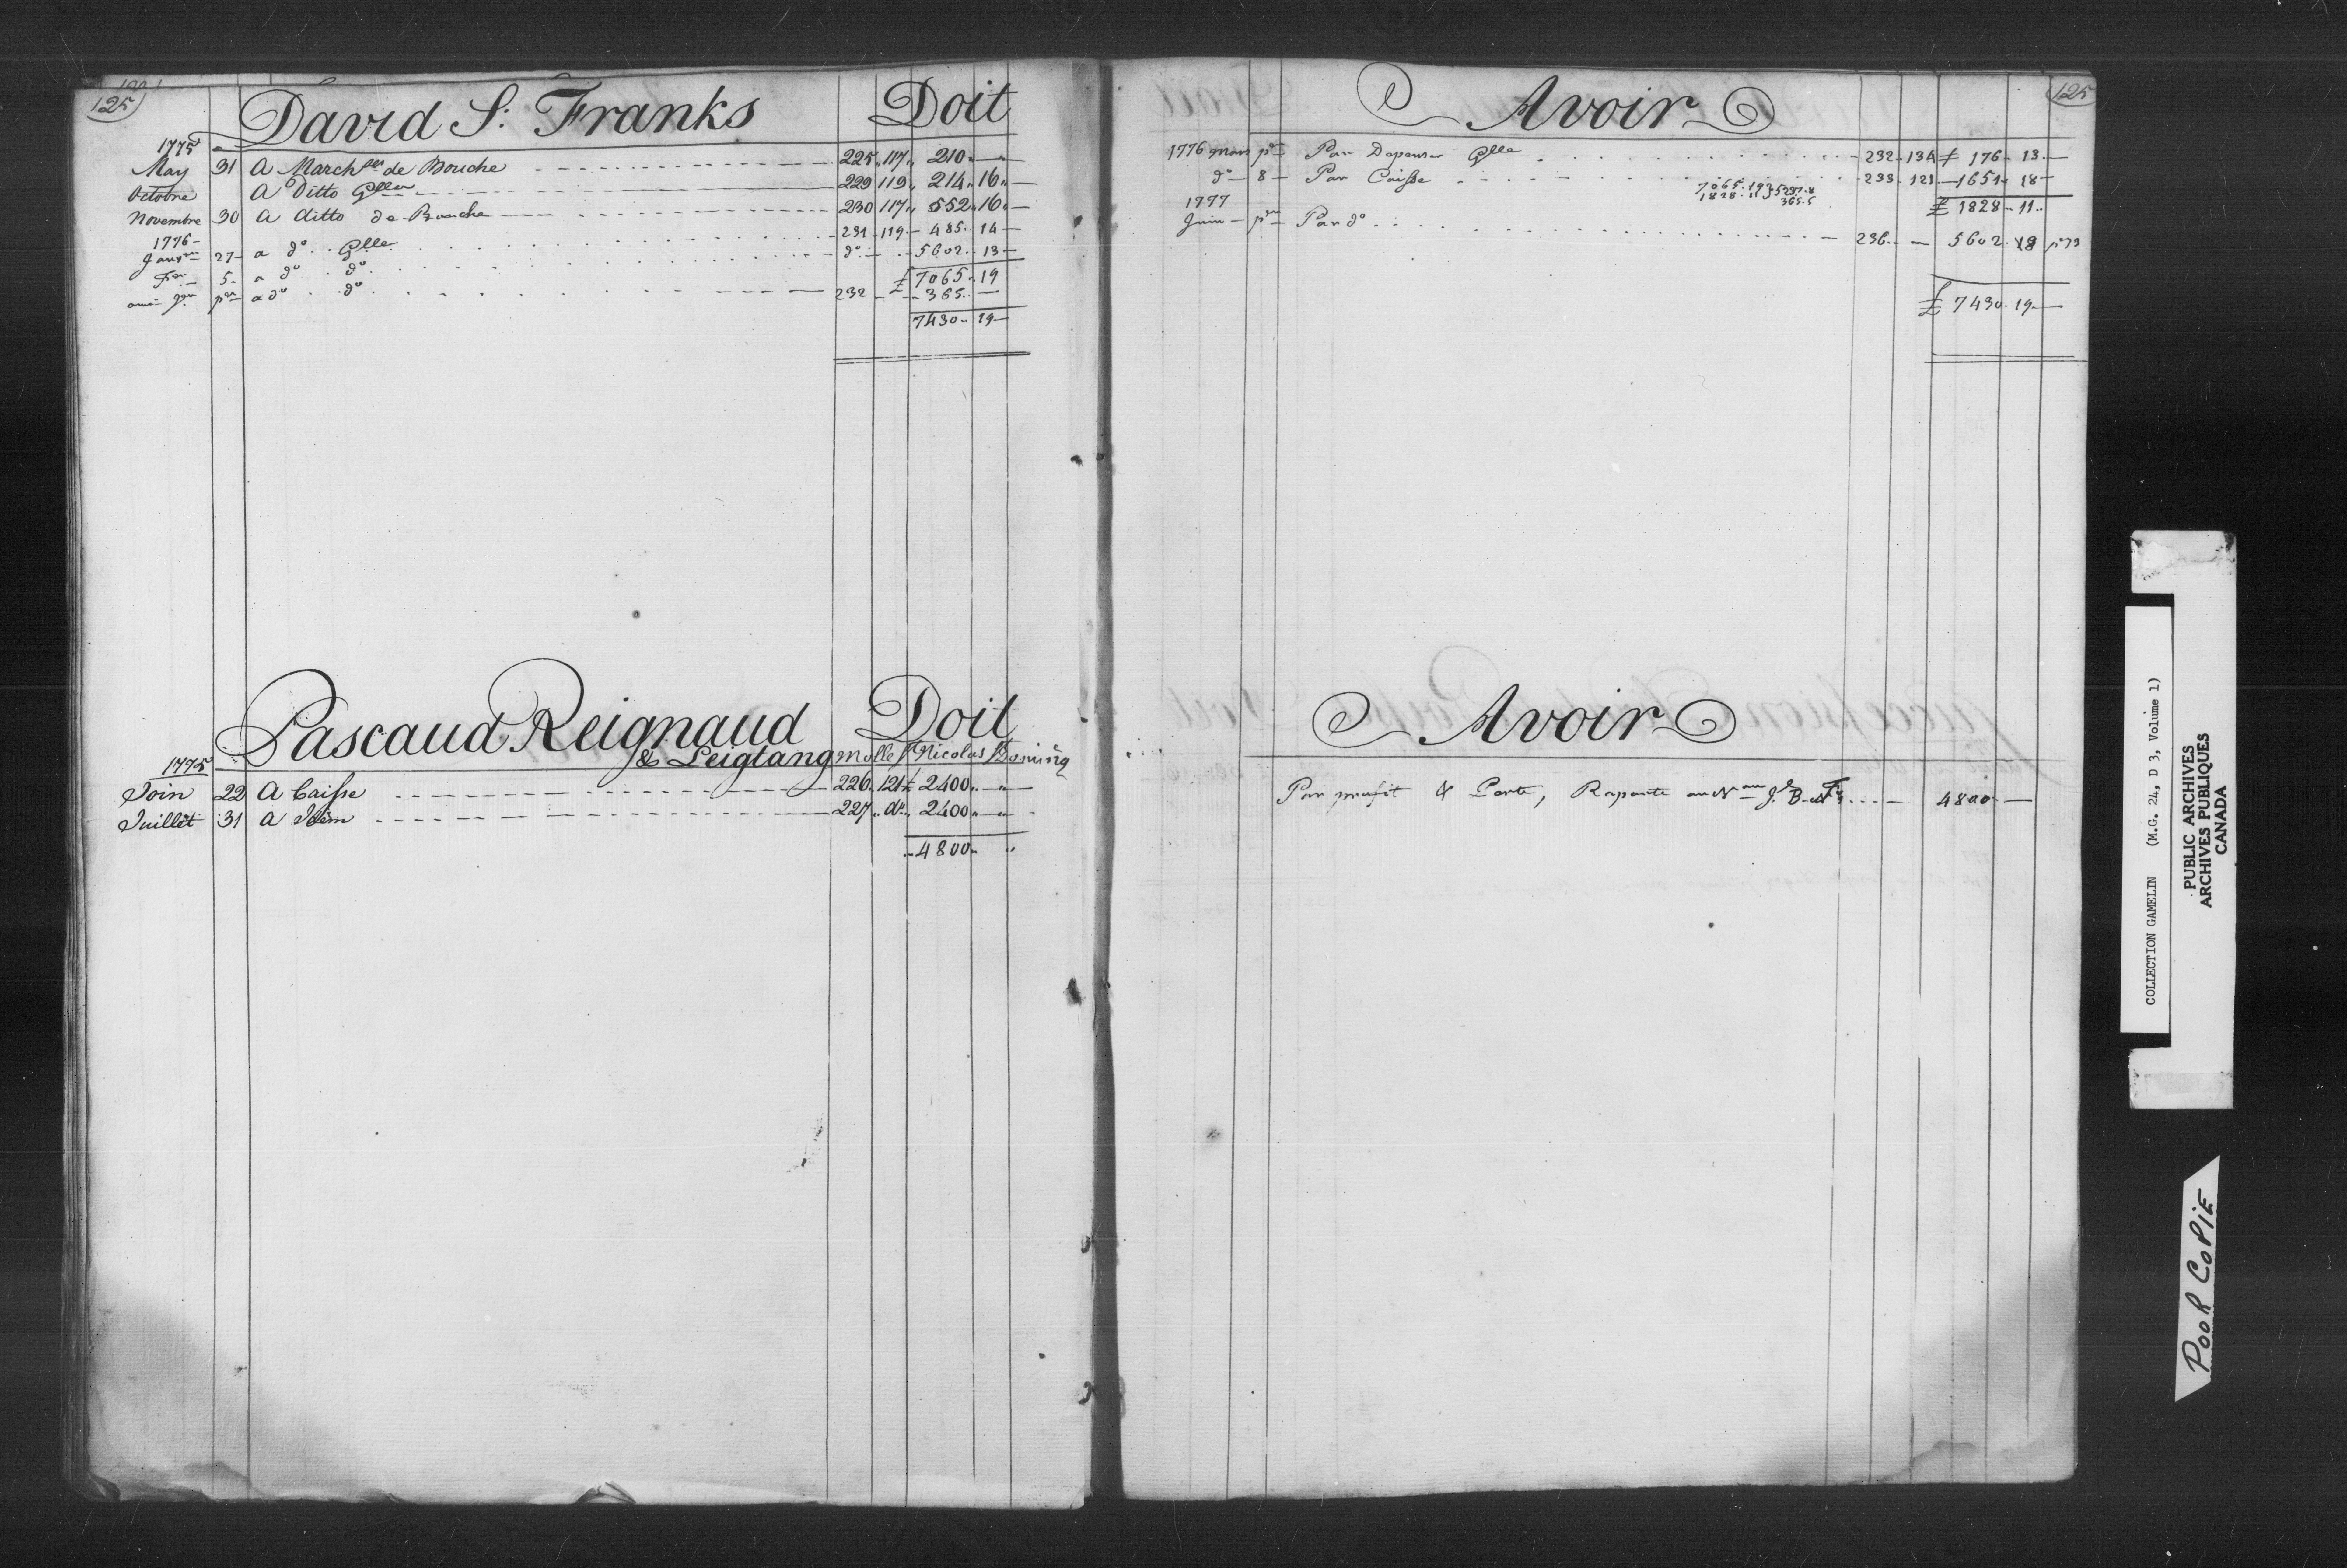 125
David S: Franks Doit
1775
May 31 A March. de Bouche 225 117 210
Octobre A Ditto Glle 229 119 214 16
Novembre 30 A ditto de Bouche 230 117 552 16
1776
Janv 27 a do Glle 231 119 485 14
5 a do do do 5602 13
£ 7065 19
a do do 232 365
7430 19
Pascaud Reignaud Doit
& Leigtang Molle / Nicolas / Boming
1775
Join 22 A Caisse 226 121 £ 2400
Juillêt 31 A Idem 227 do 2400
4800
125
Avoir
1776 Mars Par Depenses Glle 232 134 £ 176 13
do 8 Par Caisse 233 121 1651 18
7065 19
1828 11
£ 1828 11
1777
Juin Par do 236 5602 8
£ 7430 19
Avoir
Par proufit & Perte, Raporte au 4800
COLLECTION GAMELIN (M.G. 24, D 3, Volume 1)
PUBLIC ARCHIVES
ARCHIVES PUBLIQUES
CANADA
POOR COPIE